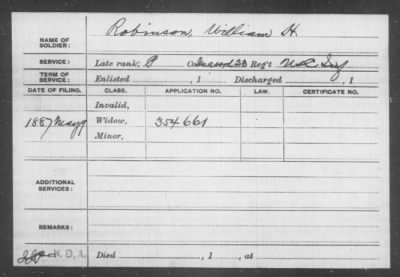 NAME OF SOLDIER: Robinson, William H.
SERVICE: Late rank, P Co. Reg't U.S.C. Inf
TERM OF SERVICE: Enlisted , 1 Discharged , 1
DATE OF FILING. CLASS. APPLICATION NO. LAW. CERTIFICATE NO.
Invalid,
1887 May 9 Widow, 354661
Minor,
ADDITIONAL SERVICES:
REMARKS:
Died , 1 , at